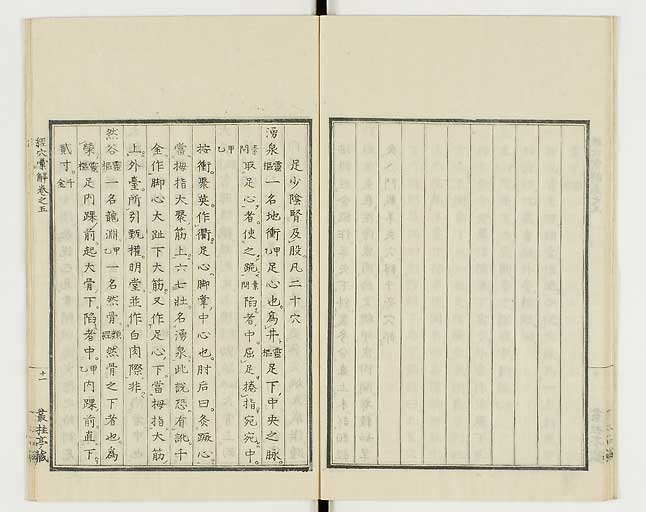 足少陰腎及股凡二十穴
湧泉靈樞一名地衝甲乙足心也爲井靈樞足下中央之脉
素問取足心者使之跪素問陷者中屈足捲指宛宛中
甲乙
按衝聚英作衢足心脚掌中心也肘后曰灸蹶心
當拇指大聚筋上六七壯名湧泉此説恐有訛千
金作脚心大趾下大筋又作足心下當拇指大筋
上外臺所引甄權明堂並作白肉際非
然谷靈樞一名龍淵甲乙一名然骨類經然骨之下者也爲
滎靈樞足内踝前起大骨下陷者中甲乙内踝前直下
貳寸千金
經穴彙解卷之五 十一 叢桂亭藏